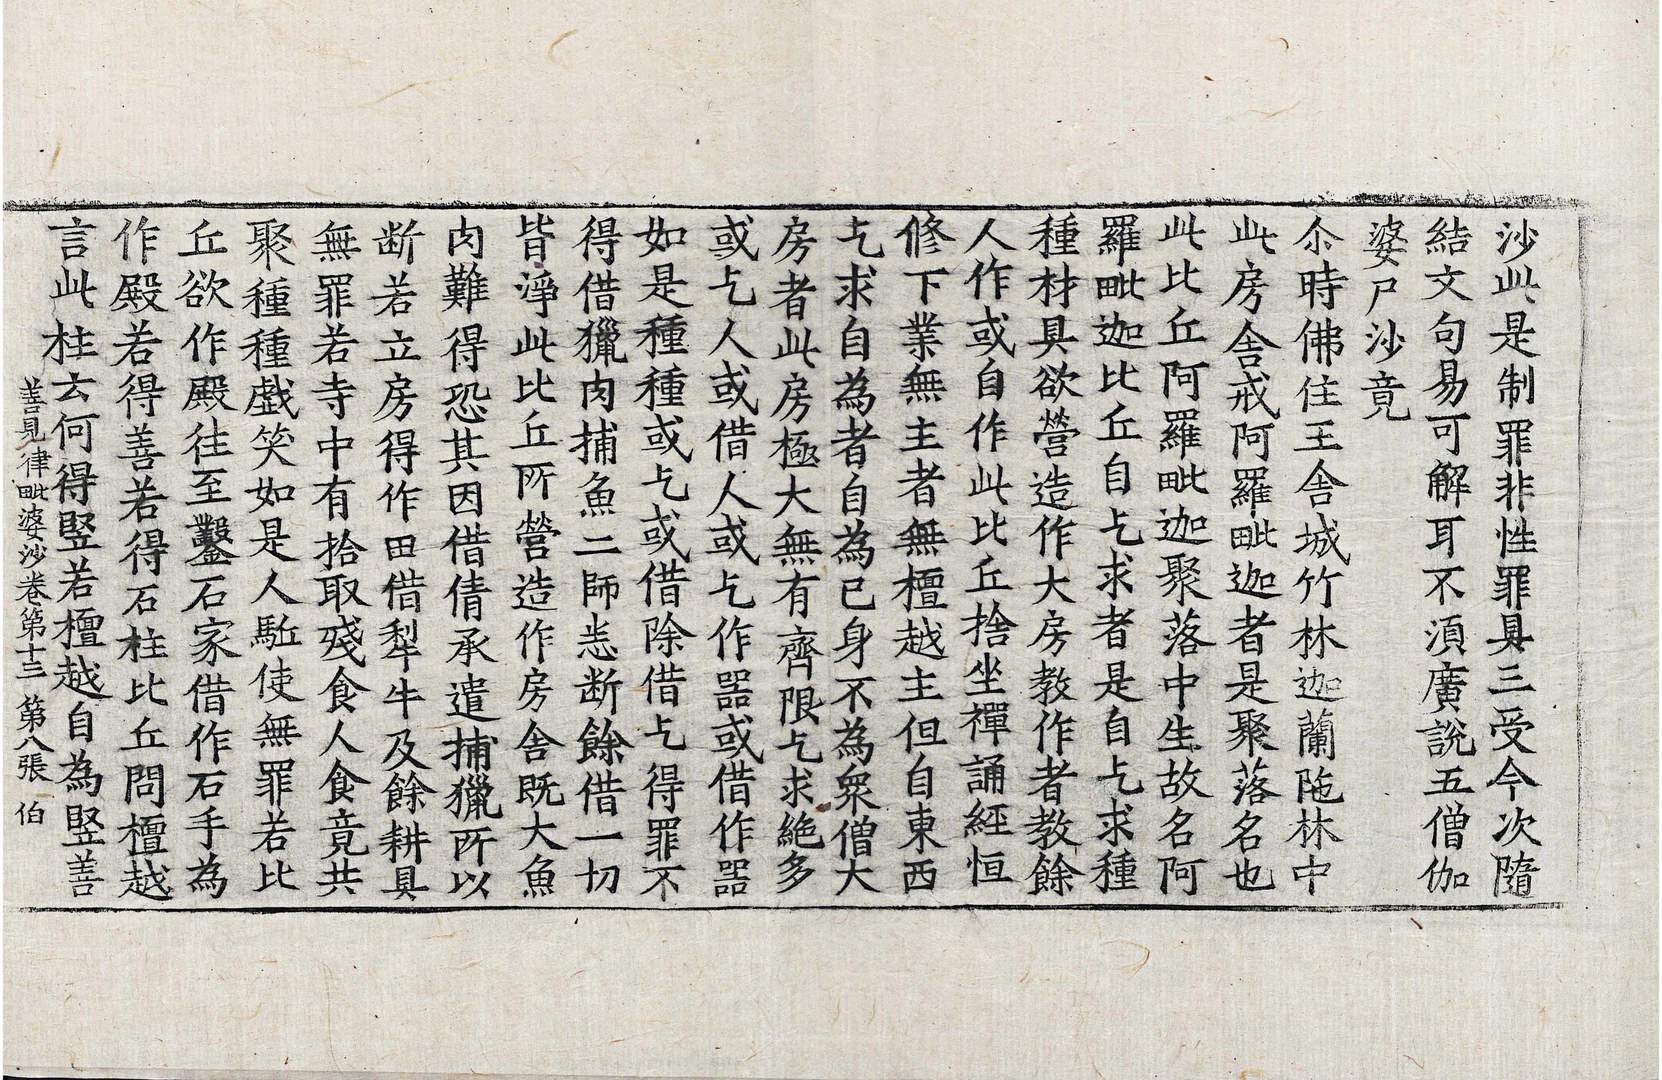 沙此是制罪非性罪具三受今次隨
結文句易可解耳不湏廣說五僧伽
婆尸沙竟
尒時佛住王舍城竹林迦蘭陁林中
此房舍戒阿羅毗迦者是聚落名也
此比丘阿羅毗迦聚落中生故名阿
羅毗迦比丘自乞求者是自乞求種
種材具欲營造作大房教作者教餘
人作或自作此比丘捨坐禪誦經恒
修下業無主者無檀越主但自東西
乞求自為者自為已身不為衆僧大
房者此房極大無有齊限乞求絶多
或乞人或借人或乞作器或借作器
如是種種或乞或借除借乞得罪不
得借獵肉捕魚二師恙断餘借一切
皆淨此比丘所營造作房舍既大魚
肉難得恐其因借倩承遣捕獵所以
断若立房得作田借犁牛及餘耕具
無罪若寺中有拾取殘食人食竟共
聚種種戲笑如是人駈使無罪若比
丘欲作殿往至鑿石家借作石手為
作殿若得善若得石柱比丘問檀越
言此柱云何得竪若檀越自為竪善
善見律毗婆沙卷第十三 第八張 伯